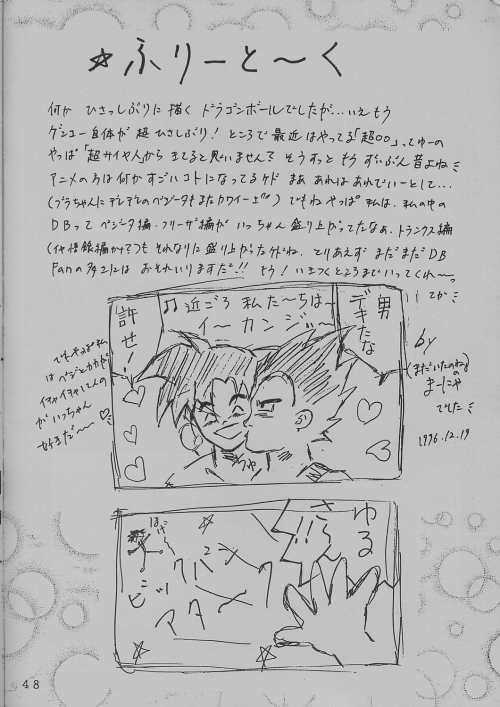 ☆ふりーと〜く
何か ひさっしぶりに描く ドラゴンボールでしたが…いえもう
ゲンコー自体が超ひさしぶり! ところで最近はやってる「超○○」ってゆーの
やっぱ「超サイヤ人」から きてると思いません? そうすっと もう ずいぶん昔よね
アニメの方は何かすごいコトになってるケド まあ あれはあれでいーとして…
(ブラちゃんにデレデレのベジータもまたカワイー) でもね やっぱ 私は、私の中の
DBって ベジータ編・フリーザ編が いっちゃん盛り上がってたなぁ、トランクス編
も それなりに盛り上がったケドね、とりあえず まだまだDB
Fanの多さには おそれいりますだ!! もう! いきつくところまでいってくれ〜っ
てか
近ごろ 私た〜ちは〜
イ〜 カンジ〜
♫
許せ!
男
デキたな
ちゅ
でもやっぱ私
はベジとカカが
イチャイチャしてんの
がいっちゃん
好きだ〜
by
(まだいたのね)
まーにゃ
でした
1996.12.19
ゆる
さん
!!
ビッ
アタ
48